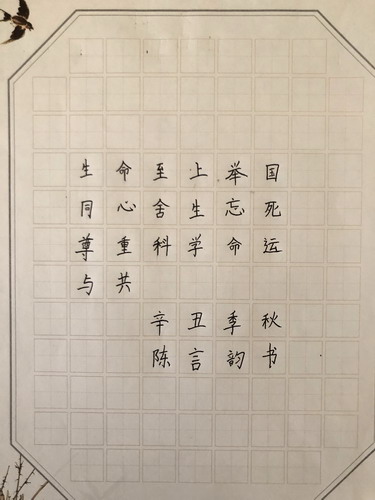 生命至上举国
同心舍生忘死
尊重科学命运
与共
辛丑季秋
陈言韵书